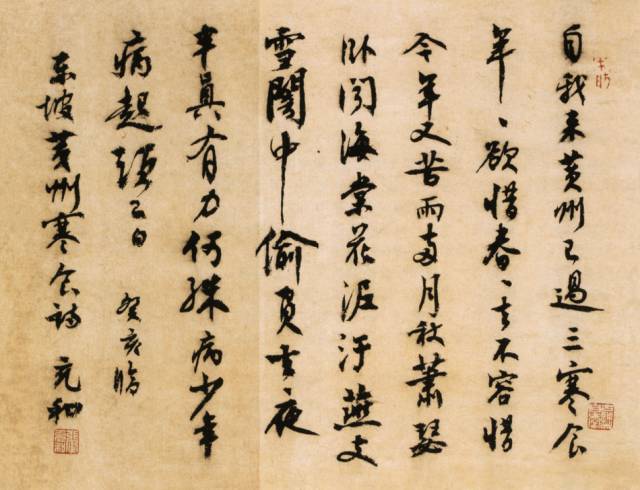 自我来黄州已過三寒食
年、欲惜春、去不容惜
今年又苦雨兩月秋蕭瑟
卧聞海棠花泥汙燕支
雪闇中偷負去夜
半真有力何殊病少年
病起頭已白 癸亥臨
東坡黄州寒食詩 充和